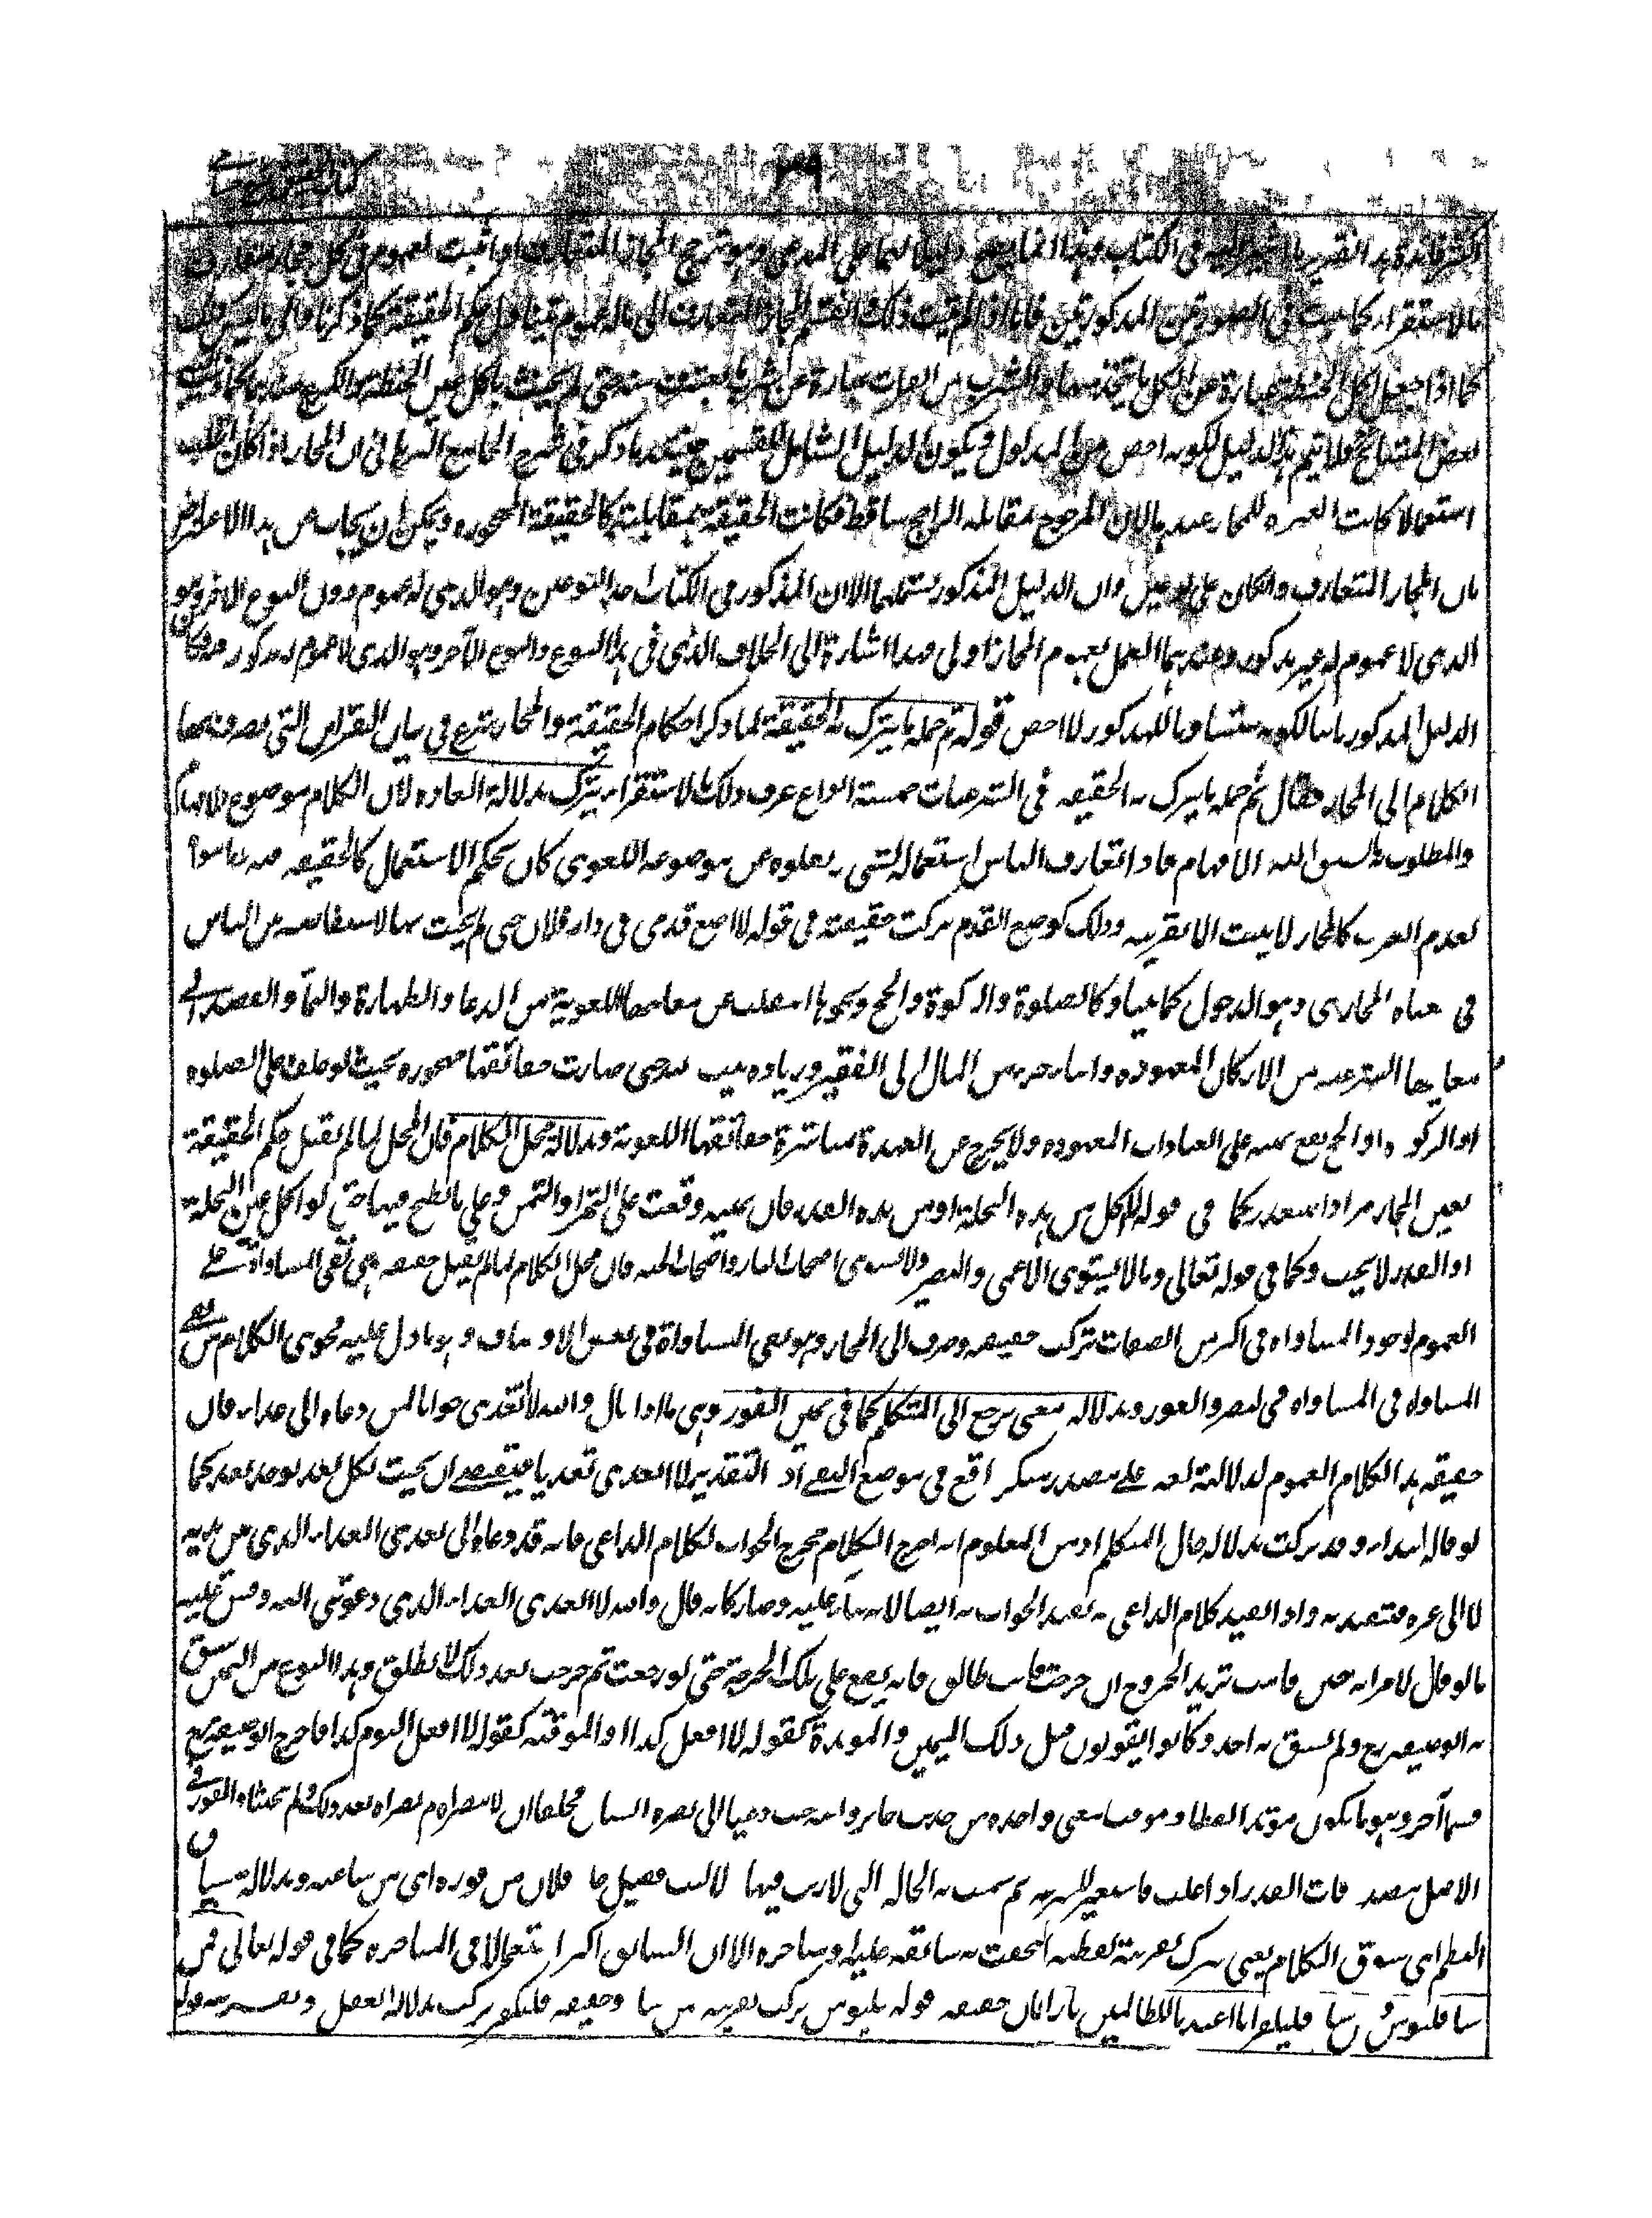 اكثر فائدة بهذا التفسير في الكتاب وهذا انما يصح دليلا على المدعى وهو ترجح المجاز المتعارف لو اثبت العموم في كل مجاز متعارف
بالاستقراء كما ثبت في الصورتين المذكورتين فاما اذا لم يثبت ذلك وانقسم المجاز المتعارف الى ماله عموم يتناول حكم الحقيقة كما ذكرنا والى ما ليس كذلك
كما اذا جعل اكل الحنطة عبارة عن اكل ما يتخذ منها والشرب من الفرات عبارة عن شرب ماء يغترف منه حتى لم يحنث باكل عين الحنطة والكرع
بعض المشايخ فلا يتم هذا الدليل لكونه اخص من المدلول ويكون الدليل الشامل للقسمين حينئذ ما ذكر في شرح الجامع البرهاني ان المجاز اذا كان اغلب
استعمالا كانت العبرة للمجاز عندهما لان المرجوح بمقابلة الراجح ساقط فكانت الحقيقة بمقابلته كالحقيقة المهجورة ويمكن ان يجاب عن هذا الاعتراض
بان المجاز المتعارف وان كان على نوعين وان الدليل المذكور يشملهما الا ان المذكور في الكتاب احد النوعين وهو الذي له عموم دون النوع الآخر وهو
الذي لا عموم له غير مذكور وعندهما العمل بعموم المجاز اولى وهذا اشارة الى الخلاف الذي في هذا النوع والنوع الآخر وهو الذي لا عموم له مذكور فكان
الدليل المذكور مناسبا لكونه متساويا للمذكور لا اخص قوله ثم جملة ما يترك به الحقيقة لما ذكر احكام الحقيقة والمجاز شرع في بيان القرائن التي يصرف بها
الكلام الى المجاز فقال ثم جملة ما يترك به الحقيقة في الشرعيات خمسة انواع عرف ذلك بالاستقراء يترك بدلالة العادة لان الكلام موضوع للافهام
والمطلوب به ما يسبق اليه الافهام فاذا تعارف الناس استعماله لشيء ونقلوه عن موضوعه اللغوي كان بحكم الاستعمال كالحقيقة فيه وما سواه
لعدم العرف كالمجاز لا يثبت الا بقرينة وذلك كوضع القدم تركت حقيقته في قوله لا اضع قدمي في دار فلان حتى لم يحنث بها لاستفاضته من الناس
في معناه المجازي وهو الدخول كما بينا وكالصلوة والزكوة والحج ونحوها انتقلت عن معانيها اللغوية من الدعاء والطهارة والنماء والقصد الى
معانيها الشرعية من الاركان المعهودة وايتاء جزء من المال الى الفقير وزيارة بيت الله حتى صارت حقائقها مهجورة بحيث لو حلف على الصلوة
او الزكوة او الحج يقع يمينه على العبادات المعهودة ولا يخرج عن العهدة بمباشرة حقائقها اللغوية وبدلالة محل الكلام فان المحل لما لم يقبل حكم الحقيقة
تعين المجاز مرادا بتعذرها كما في قوله لا آكل من هذه النخلة او من هذه القدر فان يمينه وقعت على الثمر او الثمن وعلى ما يطبخ فيها حتى لو اكل عين النخلة
او القدر لا يحنث وكما في قوله تعالى وما يستوي الاعمى والبصير ولا يستوي اصحاب النار واصحاب الجنة فان محل الكلام لما لم يقبل حقيقته وهي نفي المساواة على
العموم لوجود المساواة في اكثر من الصفات تركت حقيقته وصرف الى المجاز وهو نفي المساواة في بعض الاوصاف وهو ما دل عليه فحوى الكلام من نفي
المساواة في المساواة في البصر والفوز وبدلالة معنى يرجع الى المتكلم كما في يمين الفور وهي ما اذا قال والله لا اتغدى جوابا لمن دعاه الى غداء فان
حقيقة هذا الكلام العموم لدلالته لغة على مصدر منكر واقع في موضع النفي اذ التقدير لا اتغدى تغديا فيقتضي ان يحنث لكل تغد يوجد بعد كما
لو قاله ابتداء وقد تركت بدلالة حال المتكلم اذ من المعلوم انه اخرج الكلام مخرج الجواب لكلام الداعي فانه قد دعاه الى تغدي الغداء الذي بين يديه
لا الى غيره فتقيد به واذا تقيد كلام الداعي به تقيد الجواب به ايضا لانه بناء عليه وصار كانه قال والله لا اتغدى الغداء الذي دعوتني اليه وقس عليه
ما لو قال لامرأته حين قامت تريد الخروج ان خرجت فانت طالق فانه يقع على تلك الخرجة حتى لو رجعت ثم خرجت بعد ذلك لا تطلق وهذا النوع من اليمين سبق
به ابو حنيفة رح ولم يسبق به احد وكانوا يقولون قبل ذلك اليمين والمؤبدة كقوله لا افعل كذا والموقتة كقوله لا افعل اليوم كذا فاخرج ابو حنيفة رح
قسما آخر وهو ما يكون مؤبدا لفظا وموقتا معنى واخذه من حديث جابر وابنه حيث دعيا الى نصرة انسان فحلفا ان لا ينصراه ثم نصراه بعد ذلك ولم يحنثا والفور في
الاصل مصدر فارت القدر اذا غلت فاستعير للسرعة ثم سميت به الحالة التي لا ريث فيها ولا لبث فقيل جاء فلان من فوره اي من ساعته وبدلالة سياق
النظم اي سوق الكلام يعني يترك بقرينة لفظية التحقت به سابقة عليه او متأخرة الا ان السياق اكثر استعمالا في المتأخرة كما في قوله تعالى فمن
شاء فليؤمن ومن شاء فليكفر انا اعتدنا للظالمين نارا فان حقيقة قوله فليؤمن تركت بقرينة من شاء وحقيقة فليكفر تركت بدلالة العقل وبقرينة قوله